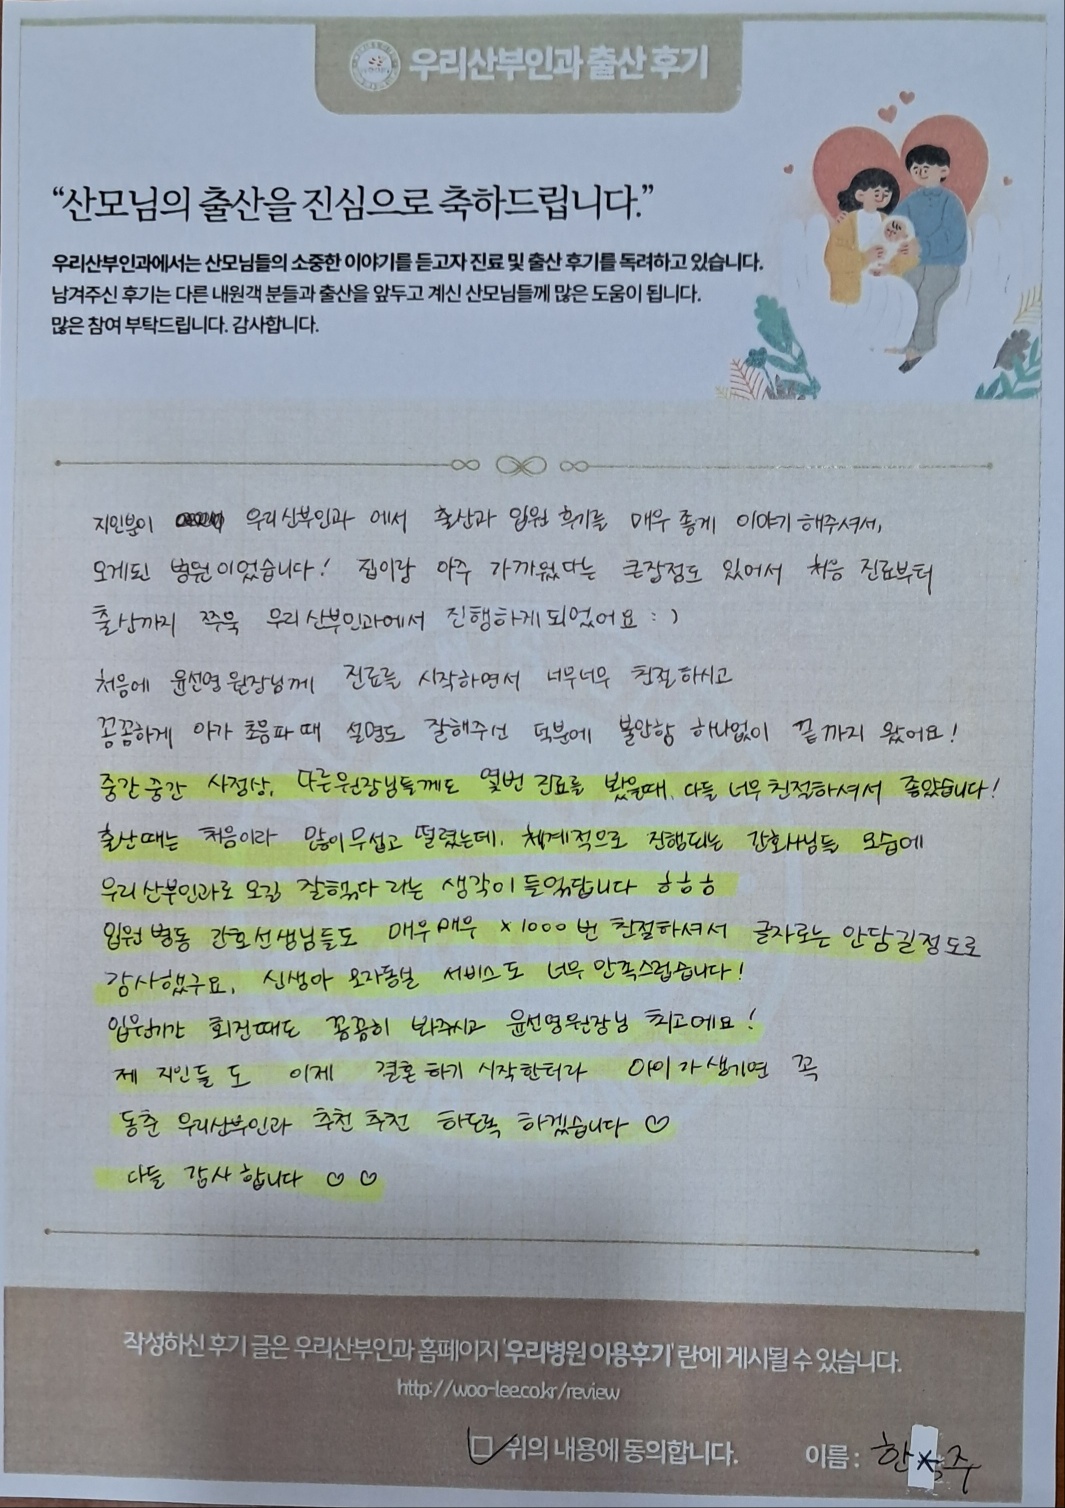 우리산부인과 출산 후기
“산모님의 출산을 진심으로 축하드립니다.”
우리산부인과에서는 산모님들의 소중한 이야기를 듣고자 진료 및 출산 후기를 독려하고 있습니다.
남겨주신 후기는 다른 내원객 분들과 출산을 앞두고 계신 산모님들께 많은 도움이 됩니다.
많은 참여 부탁드립니다. 감사합니다.
지인분이 우리산부인과 에서 출산과 입원 후기를 매우 좋게 이야기 해주셔서,
오게된 병원이었습니다! 집이랑 아주 가까웠다는 큰장점도 있어서 처음 진료부터
출산까지 쭈욱 우리산부인과에서 진행하게 되었어요 : )
처음에 윤선영 원장님께 진료를 시작하면서 너무너무 친절하시고
꼼꼼하게 아가 초음파 때 설명도 잘해주신 덕분에 불안함 하나없이 끝까지 왔어요!
중간중간 사정상, 다른원장님들께도 몇번 진료를 봤을때, 다들 너무 친절하셔서 좋았습니다!
출산때는 처음이라 많이 무섭고 떨렸는데, 체계적으로 진행되는 간호사님들 모습에
우리산부인과로 오길 잘했다 라는 생각이 들었답니다 ㅎㅎㅎ
입원 병동 간호선생님들도 매우매우 ×1000 번 친절하셔서 글자로는 안담길정도로
감사했구요, 신생아 모자동실 서비스도 너무 만족스럽습니다!
입원기간 회진때도 꼼꼼히 봐주시고 윤선영원장님 최고에요!
제 지인들 도 이제 결혼하기 시작한터라 아이가 생기면 꼭
동춘 우리산부인과 추천 추천 하도록 하겠습니다 ♡
다들 감사합니다 ♡ ♡
작성하신 후기 글은 우리산부인과 홈페이지 '우리병원 이용후기' 란에 게시될 수 있습니다.
http://woo-lee.co.kr/review
위의 내용에 동의합니다. 이름 : 한*주